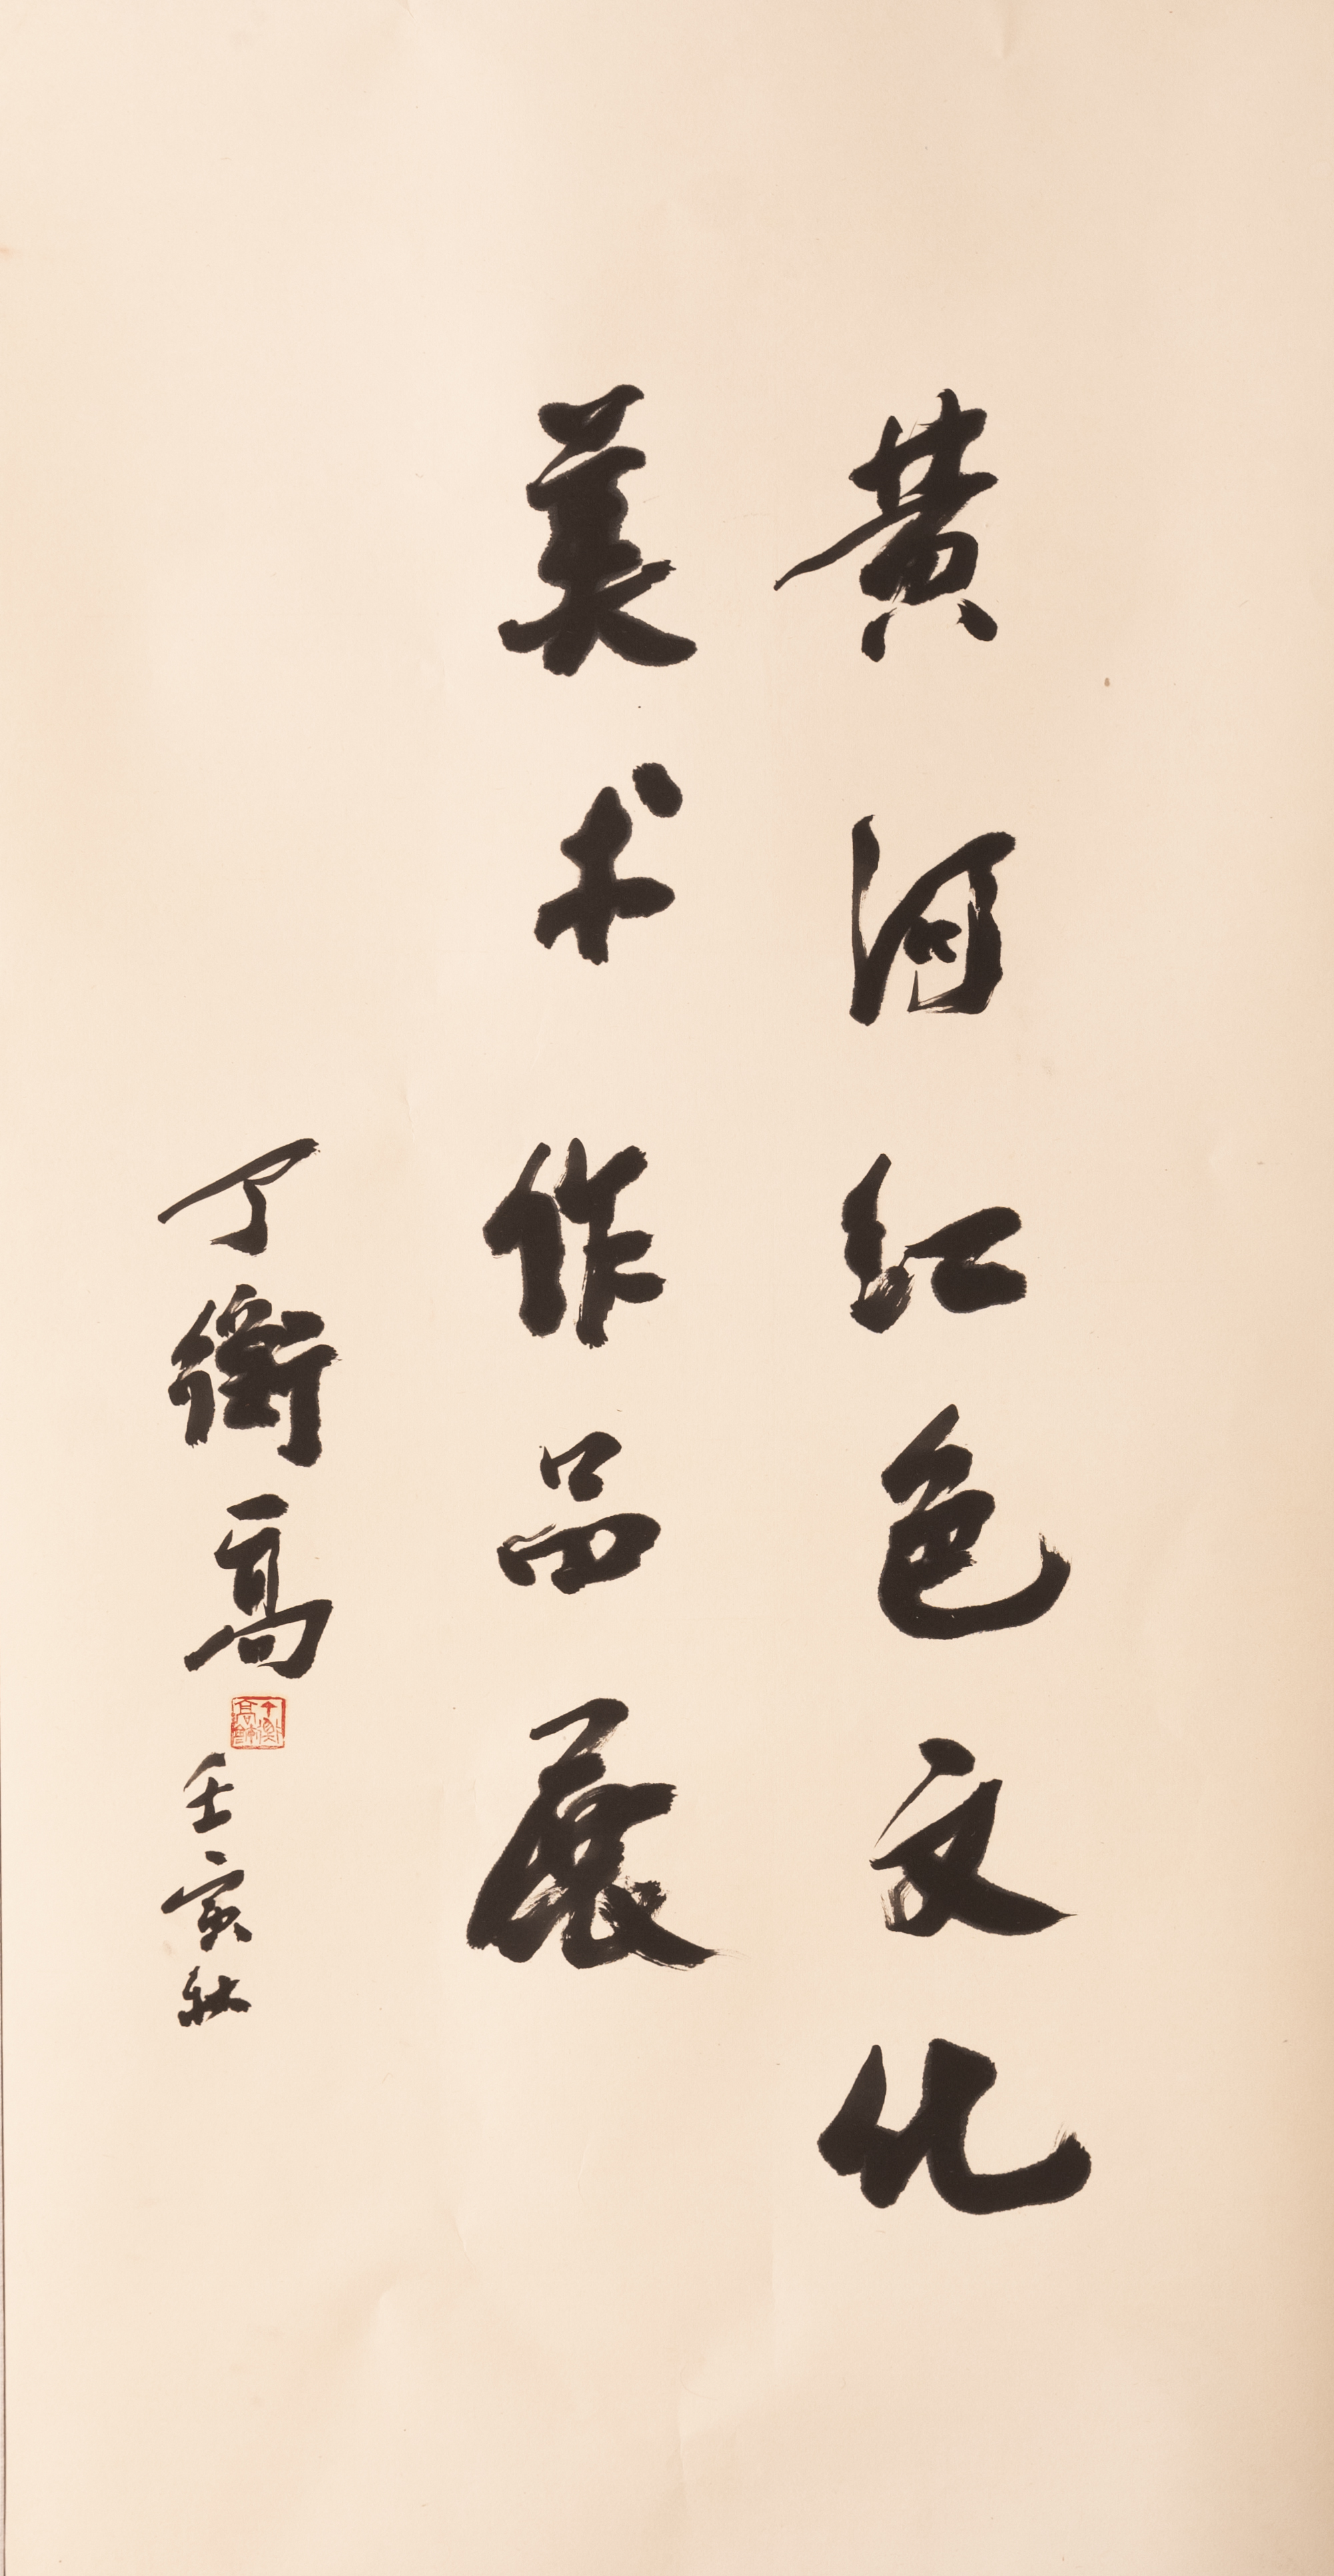 黄河红色文化
美术作品展
丁衡高
壬寅秋